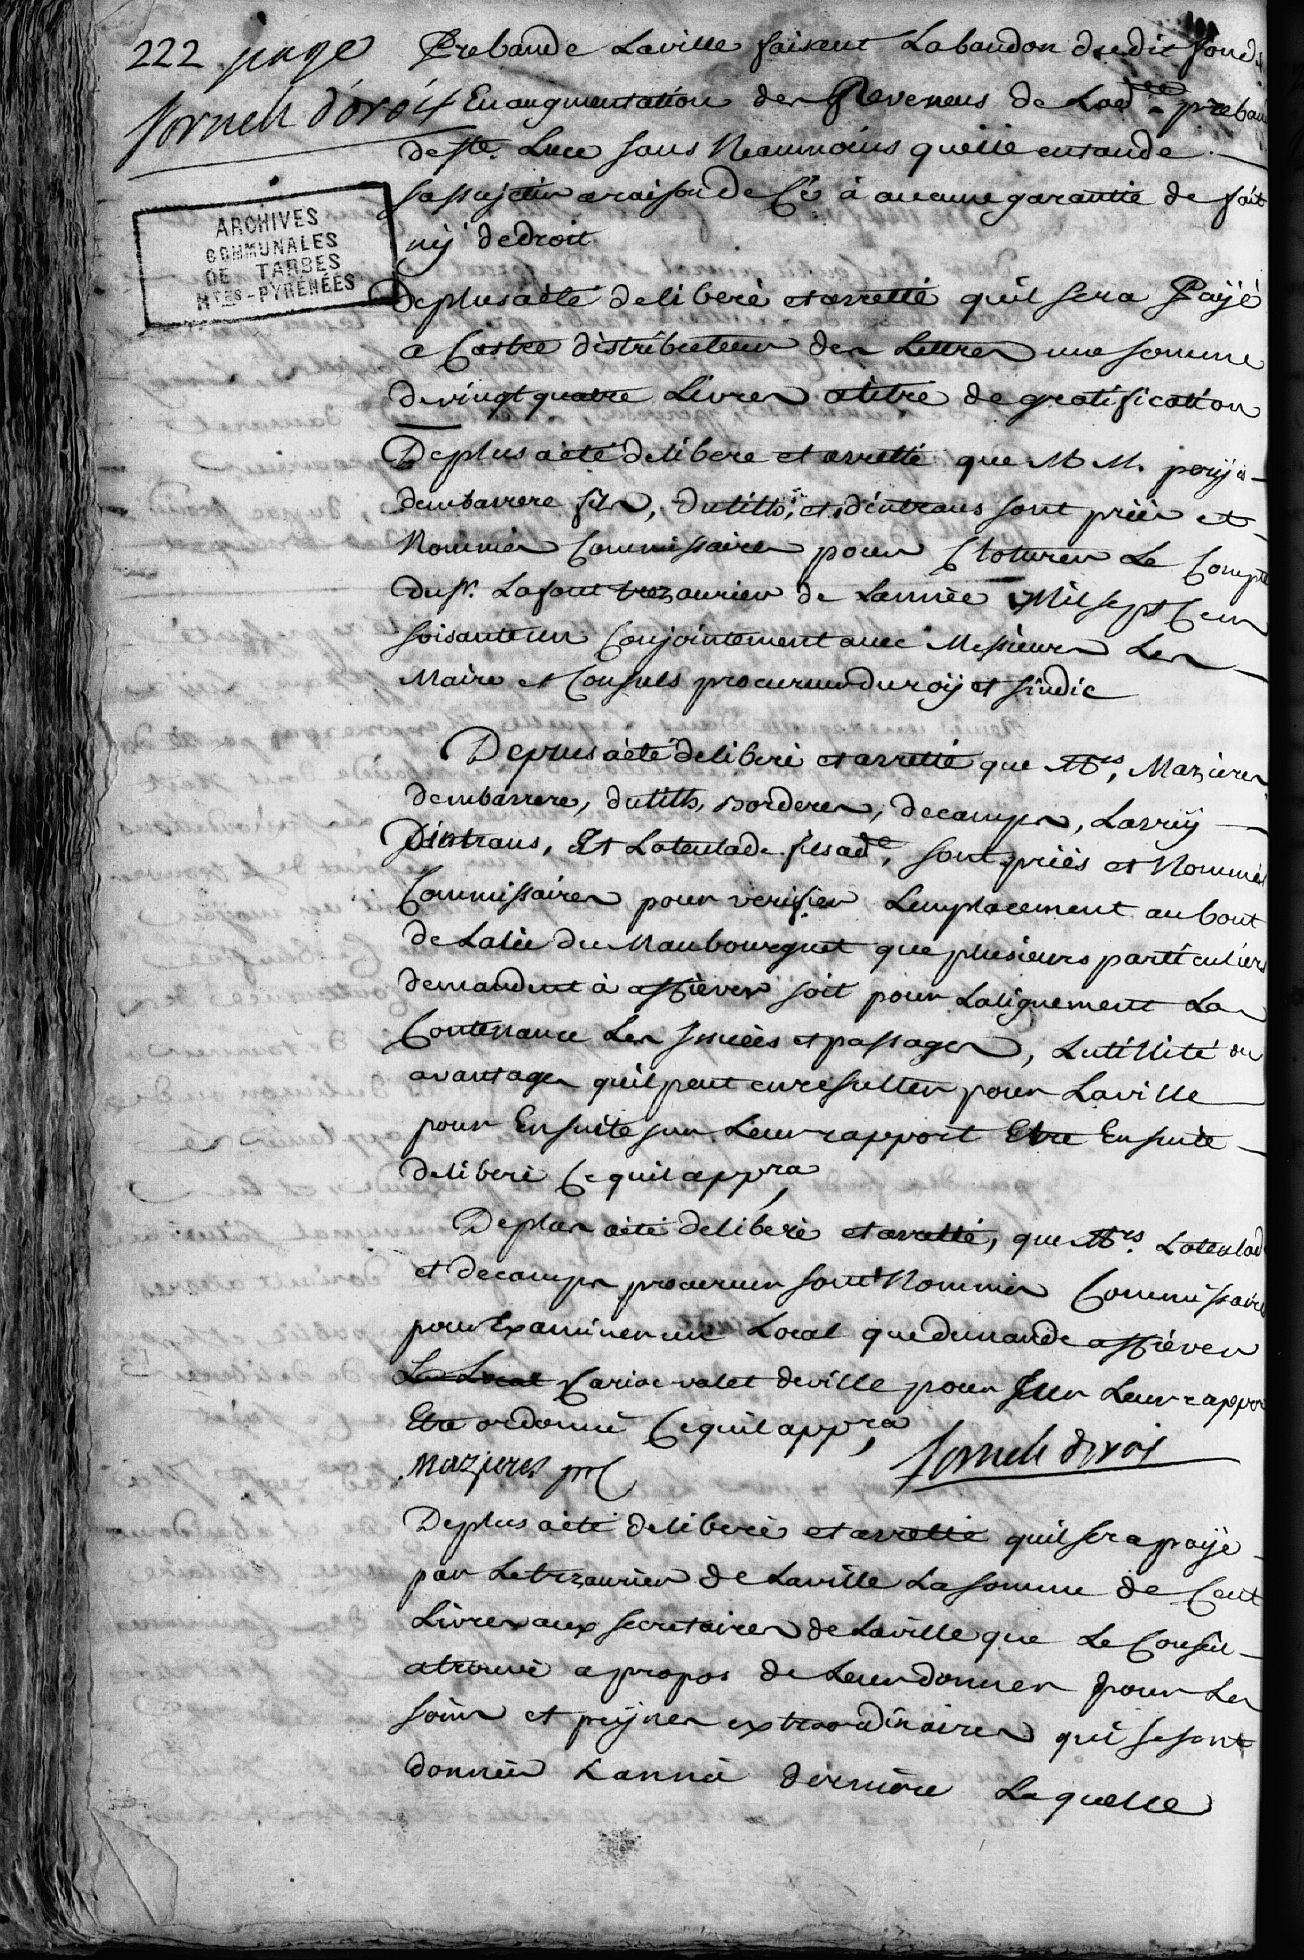 222 page
Fornets d'oroix
ARCHIVES
COMMUNALES
DE TARBES
HTES-PYRÉNÉES
Prebande Laville faisant Labandon dudit fonds
En augmentation des Reveneus de Lad.
de Ste. Luce sans Neanmoins quelle entande
sassujetir araison de Cé à aucune garantie de fait
nÿ dedroit
Deplus aété deliberé et arretté quil sera Paÿé
a Castee distributeur des Lettres une somme
devingt quatre Livres atitre de gratification
Deplus aété delibere et arretté que M M.
dembarrere fils, dutilh, et, dintrans sont priés et
Nommés Commissaires pour Cloturer Le Compte
du sr. Lafont trezaurier de Lannée Mil sept Cens
soisanteun Conjointement avec Messieurs Les
Maire et Consuls procureur du roÿ et sindic
Deplus aété deliberé et arretté que Mrs, Mazieres
dembarrere, dutilh, Borderes, decamps, Larrëy
Dintrans, Et Lateulade fils ade, sont priés et Nommés
Commissaires pour verifier Lemplacement au bout
de Lalée du Maubourguet que plusieurs particuliers
demandent à affiéver soit pour Lalignement La
Contenance Les Issuées et passages, Lutillité ou
avantages quil peut en resulter pour Laville
pour Ensuite sur Leur rapport Etre Ensuite
deliberé Cequil appra
Deplus aété deliberé et arretté, que Mrs. Lateulade
et decamps procureur sont Nommés Commissaires
pour Examiner un Local que demande affiéver
Le Local Cariac valet deville pour sur Leur rappor
Etre ordonné Cequil appra
Mazieres
Fornets d'oroix
Deplus aété deliberé et arretté quil sera paÿé
par Letrezaurier de Laville La somme de Cent
Livres aux secretaires de Laville que Le Conseil
atrouvé apropos de Leur donner pour Les
soins et peÿnes extraordinaires qui se sont
donnés Lanneé derniére Laquelle